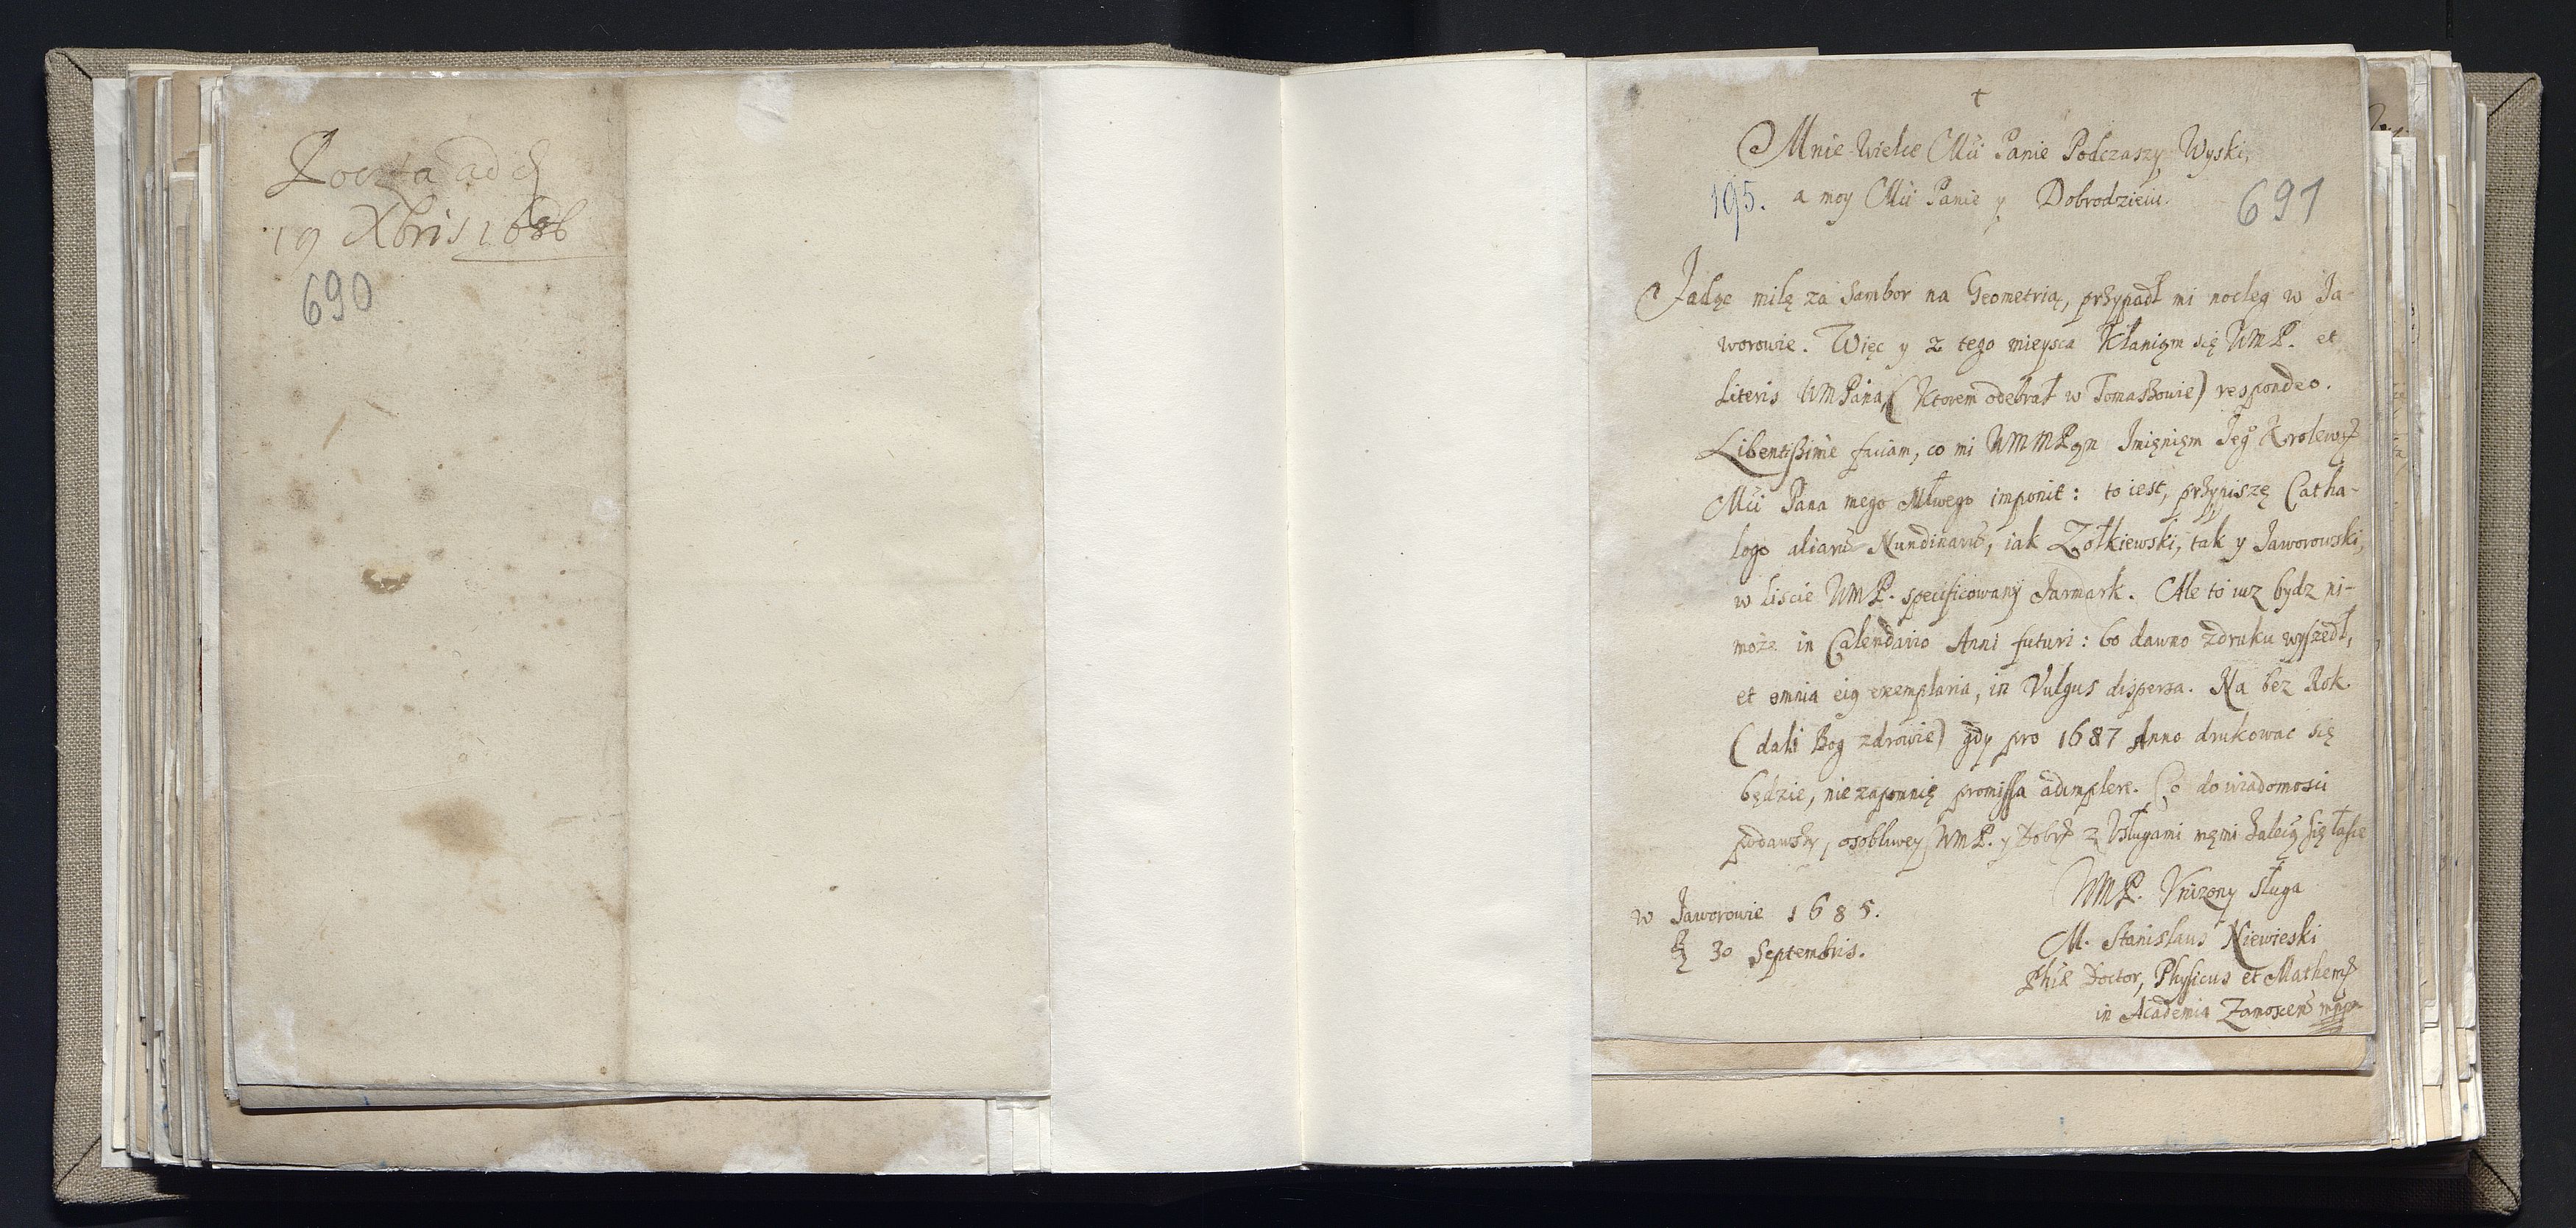 Poczta ad d
19 Xbris 1686
690
†
Mnie Wielce Mci Panie Podczaszy Wyski,
195. a moy Mci Panie y Dobrodzieiu.
691
Jadąc milę za Sambor na Geometrią, przypadł mi nocleg w Ja-
worowie. Więc y z tego mieysca Kłaniąm się WMP. et
Literis WMPana, (Ktorem odebrał w Tomaszowie) respondeo.
Libentissime faciam, co mi WMMPan Imięnięm Jego Krolews
Mci Pana mego Młwego imponit: to iest, przypiszę Catha-
logo aliarũ Nundinarũ, iak Zołkiewski, tak y Jaworowski,
w liscie WMP. specificowany Jarmark. Ale to iuz bydz ni-
może in Calendario Anni futuri: bo dawno zdruku wyszedł,
et omnia eig exemplaria, in Vulgus dispersa. Na bez Rok
(dali Bog zdrowie) gdy pro 1687 Anno drukowac się
będzie, niezapomnię promissa adimplere. Co do wiadomosci
podawszy, osobliwey WMP. y Dobr z Usługami męmi zalecą się łasce
WMP. Unizony Sługa
w Jaworowie 1685.
M. Stanislaus Niewieski
30 Septembris.
Phił Doctor, Physicus et Mathem
in Academia Zamoscen mpp